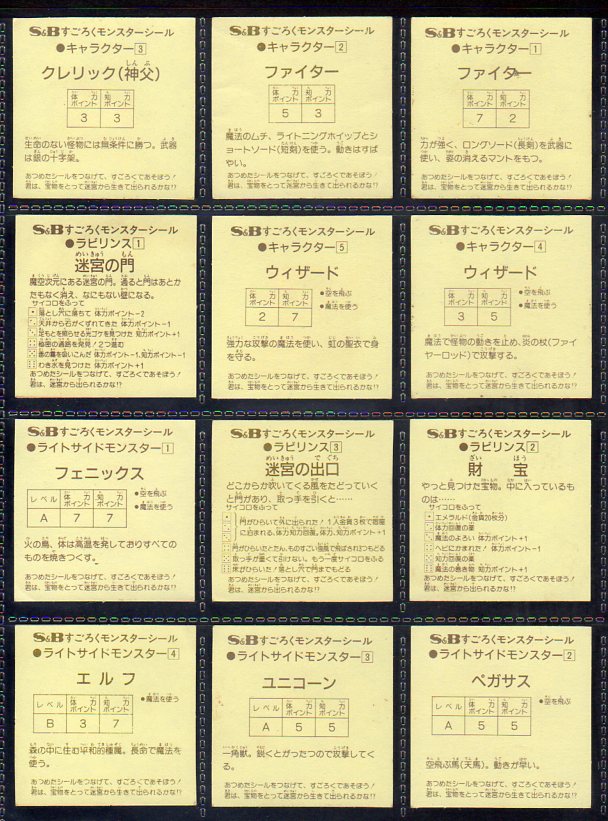 S&Bすごろくモンスターシール
●キャラクター3
クレリック(神父)
体力ポイント 知力ポイント
3 3
生命のない怪物には無条件に勝つ。武器
は銀の十字架。
あつめたシールをつなげて、すごろくであそぼう!
君は、宝物をとって迷宮から生きて出られるかな!?
S&Bすごろくモンスターシール
●キャラクター2
ファイター
体力ポイント 知力ポイント
5 3
魔法のムチ、ライトニングホイップとシ
ョートソード(短剣)を使う。動きはすば
やい。
あつめたシールをつなげて、すごろくであそぼう!
君は、宝物をとって迷宮から生きて出られるかな!?
S&Bすごろくモンスターシール
●キャラクター1
ファイター
体力ポイント 知力ポイント
7 2
力が強く、ロングソード(長剣)を武器に
使い、姿の消えるマントをもつ。
あつめたシールをつなげて、すごろくであそぼう!
君は、宝物をとって迷宮から生きて出られるかな!?
S&Bすごろくモンスターシール
●ラビリンス1
迷宮の門
魔空次元にある迷宮の門。通ると門はあとか
たもなく消え、なにもない壁になる。
サイコロをふって
落とし穴に落ちて 体力ポイント−2
天井から石がくずれてきた 体力ポイント−1
足もとを照らせる光ゴケを見つけた 知力ポイント+1
秘密の通路を発見!2つ進む
悪の霧を吸いこんだ 体力ポイント−1、知力ポイント−1
わき水を見つけた 体力ポイント+1
あつめたシールをつなげて、すごろくであそぼう!
君は、迷宮から生きて出られるかな!?
S&Bすごろくモンスターシール
●キャラクター5
ウィザード
体力ポイント 知力ポイント
2 7
●空を飛ぶ
●魔法を使う
強力な攻撃の魔法を使い、虹の聖衣で身
を守る。
あつめたシールをつなげて、すごろくであそぼう!
君は、宝物をとって迷宮から生きて出られるかな!?
S&Bすごろくモンスターシール
●キャラクター4
ウィザード
体力ポイント 知力ポイント
3 5
●空を飛ぶ
●魔法を使う
魔法で怪物の動きを止め、炎の杖(ファイ
ヤーロッド)で攻撃する。
あつめたシールをつなげて、すごろくであそぼう!
君は、宝物をとって迷宮から生きて出られるかな!?
S&Bすごろくモンスターシール
●ライトサイドモンスター1
フェニックス
レベル 体力ポイント 知力ポイント
A 7 7
●空を飛ぶ
●魔法を使う
火の鳥、体は高温を発しておりすべての
ものを焼きつくす。
あつめたシールをつなげて、すごろくであそぼう!
君は、宝物をとって迷宮から生きて出られるかな!?
S&Bすごろくモンスターシール
●ラビリンス3
迷宮の出口
どこからか吹いてくる風をたどっていく
と門があり、取っ手を引くと……
サイコロをふって
門がひらいて外に出られた!1人金貨3枚で宿屋
に泊まれる、体力知力回復。体力、知力ポイント+1
門がひらいたとたん、ものすごい強風で飛ばされ3つもどる
取っ手が重くて引けない。もう一度サイコロをふる
床がひらいた!落とし穴で門までもどる
あつめたシールをつなげて、すごろくであそぼう!
君は、宝物をとって迷宮から生きて出られるかな!?
S&Bすごろくモンスターシール
●ラビリンス2
財宝
やっと見つけた宝物。中に入っているも
のは……
サイコロをふって
エメラルド(金貨20枚分)
体力回復の薬
魔法のよろい 体力ポイント+1
ヘビにかまれた! 体力ポイント−1
知力回復の薬
魔法の巻き物 知力ポイント+1
あつめたシールをつなげて、すごろくであそぼう!
君は、宝物をとって迷宮から生きて出られるかな!?
S&Bすごろくモンスターシール
●ライトサイドモンスター4
エルフ
レベル 体力ポイント 知力ポイント
B 3 7
●魔法を使う
森の中に住む平和的種属。長命で魔法を
使う。
あつめたシールをつなげて、すごろくであそぼう!
君は、宝物をとって迷宮から生きて出られるかな!?
S&Bすごろくモンスターシール
●ライトサイドモンスター3
ユニコーン
レベル 体力ポイント 知力ポイント
A 5 5
一角獣。鋭くとがったつので攻撃してく
る。
あつめたシールをつなげて、すごろくであそぼう!
君は、宝物をとって迷宮から生きて出られるかな!?
S&Bすごろくモンスターシール
●ライトサイドモンスター2
ペガサス
レベル 体力ポイント 知力ポイント
A 5 5
●空を飛ぶ
空飛ぶ馬(天馬)。動きが早い。
あつめたシールをつなげて、すごろくであそぼう!
君は、宝物をとって迷宮から生きて出られるかな!?